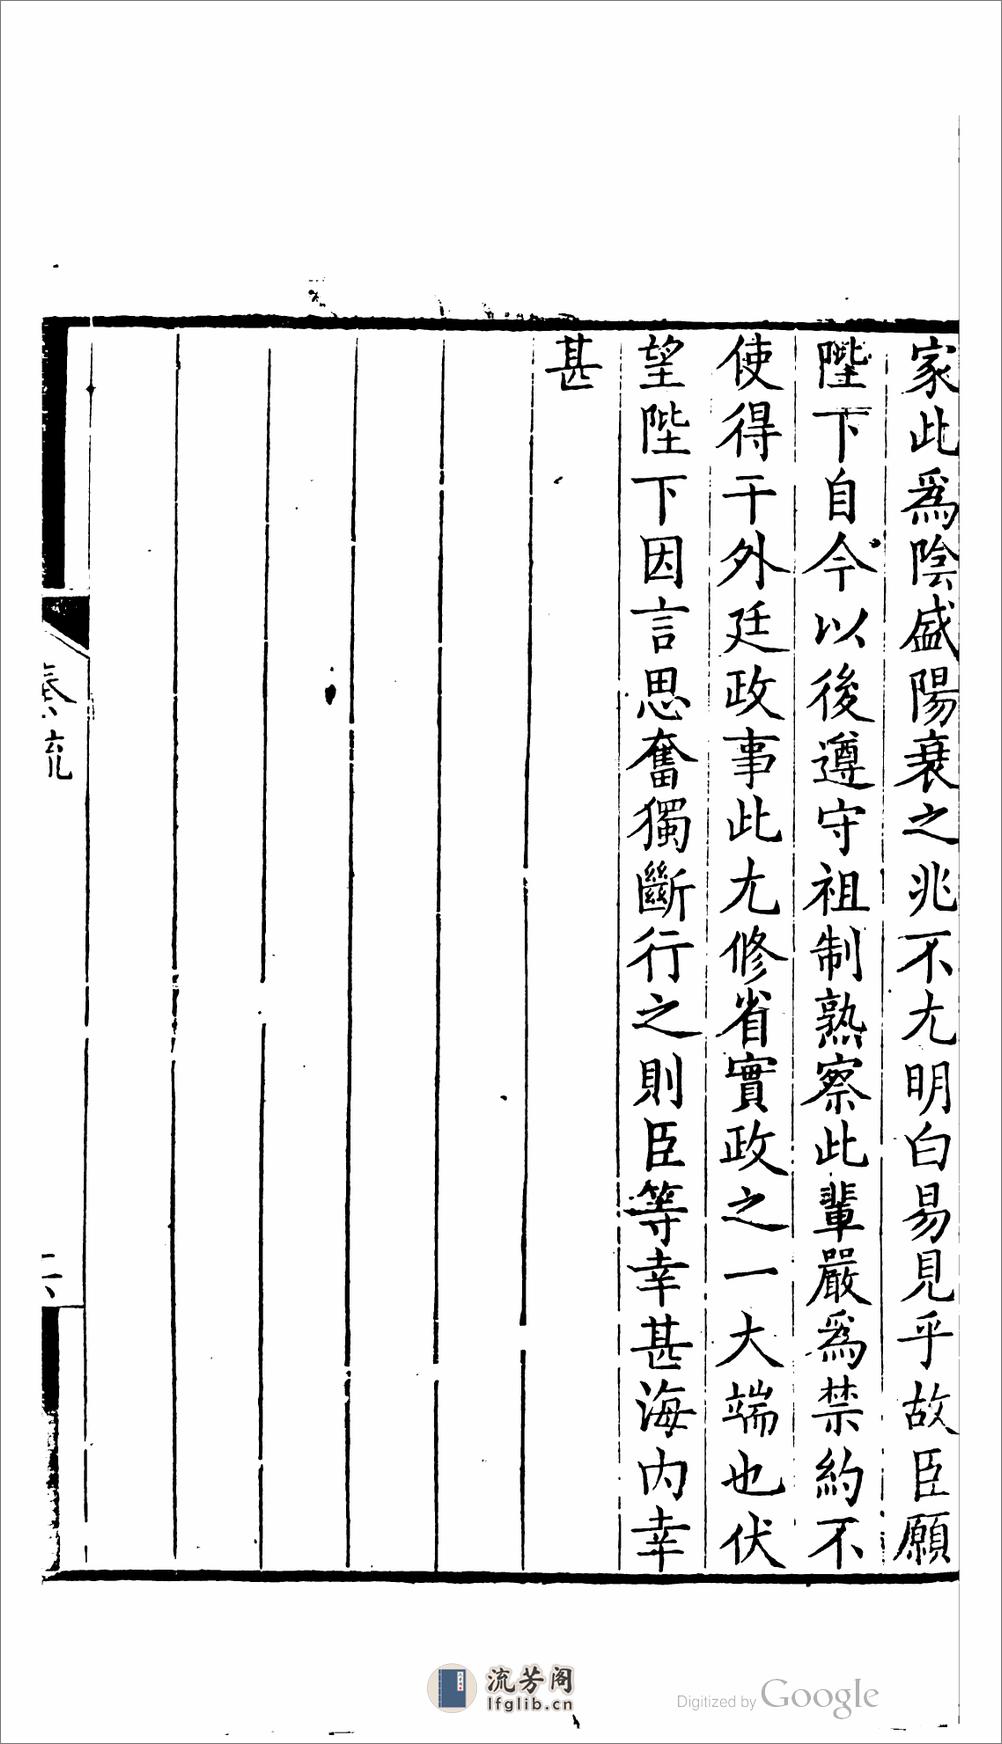 家此爲陰盛陽衰之兆不尤明白易見乎故臣願
陛下自今以後遵守祖制熟察此輩嚴爲禁約不
使得干外廷政事此尤修省實政之一大端也伏
望陛下因言思奮獨斷行之則臣等幸甚海内幸
甚
奏疏
流芳阁
lfglib.cn
Digitized by Google